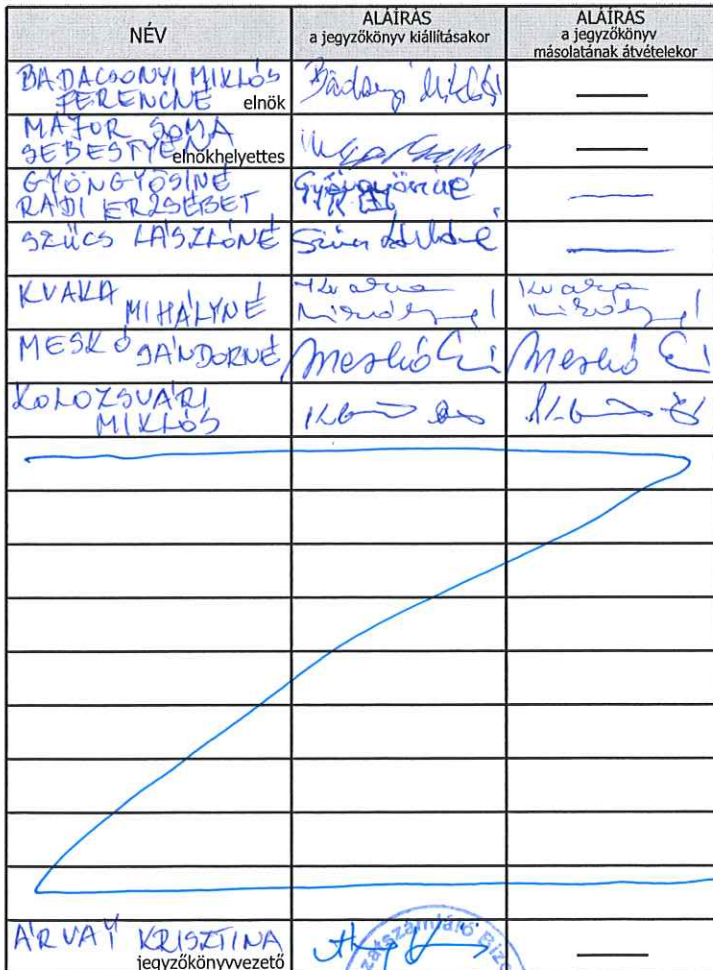 NÉV
ALÁÍRÁS
a jegyzőkönyv kiállításakor
ALÁÍRÁS
a jegyzőkönyv
másolatának átvételekor
BADACSONYI MIKLÓS
FERENCNÉ elnök
MAJOR SOMA
SEBESTYÉN elnökhelyettes
GYÖNGYÖSINÉ
RÁDI ERZSÉBET
Gyöngyösiné
SZŰCS LÁSZLÓNÉ
Szűcs Lászlóné
KVAKA MIHÁLYNÉ
MESKÓ SÁNDORNÉ
Meskó
Meskó
KOLOZSVÁRI
MIKLÓS
ÁRVAY KRISZTINA
jegyzőkönyvvezető